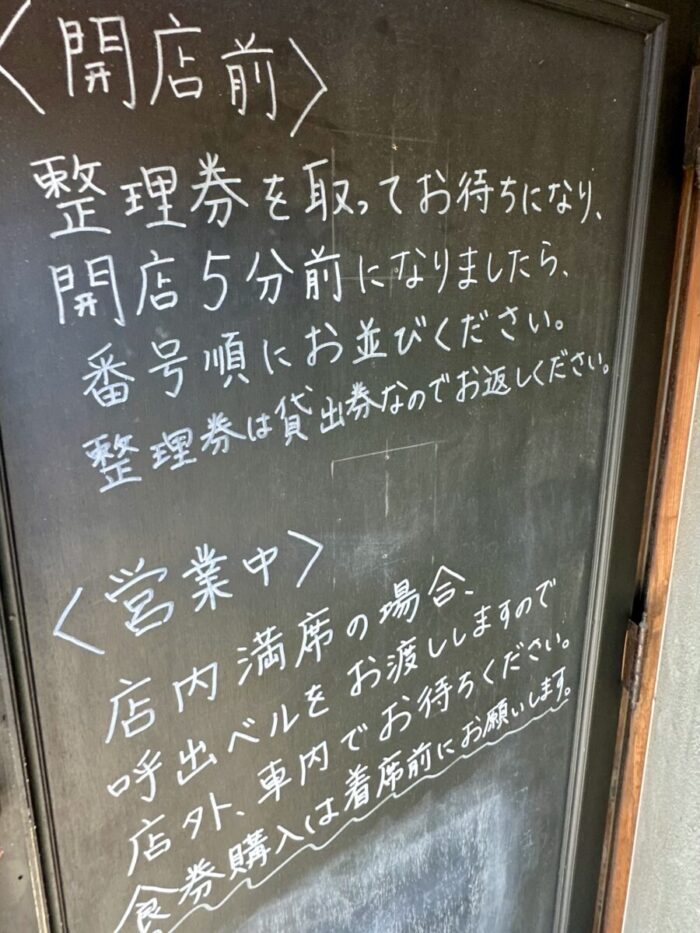 〈開店前〉
整理券を取ってお待ちになり、
開店5分前になりましたら、
番号順にお並びください。
整理券は貸出券なのでお返しください。
〈営業中〉
店内満席の場合、
呼出ベルをお渡ししますので
店外、車内でお待ちください。
食券購入は着席前にお願いします。